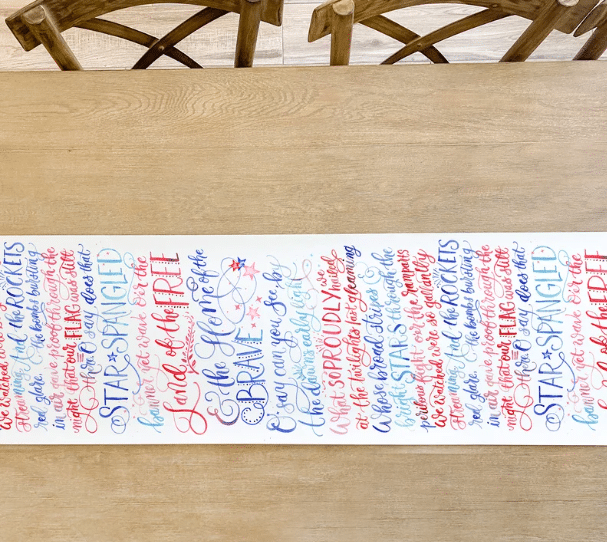 We watched were so gallantly
Streaming And the ROCKETS
red glare, the bombs bursting
in air, gave proof through the
night that our FLAG was still
there O say does that
STAR SPANGLED
banner yet wave over the
Land of the FREE
& the Home of the
BRAVE
O' say can you see, by
the dawns early light
What SO PROUDLY we hailed
at the twilights last gleaming
Whose broad stripes &
bright STARS through the
perilous fight our the ramparts
We watched were so gallantly
Streaming And the ROCKETS
red glare, the bombs bursting
in air, gave proof through the
night that our FLAG was still
there O say does that
STAR SPANGLED
banner yet wave over the
Land of the FREE